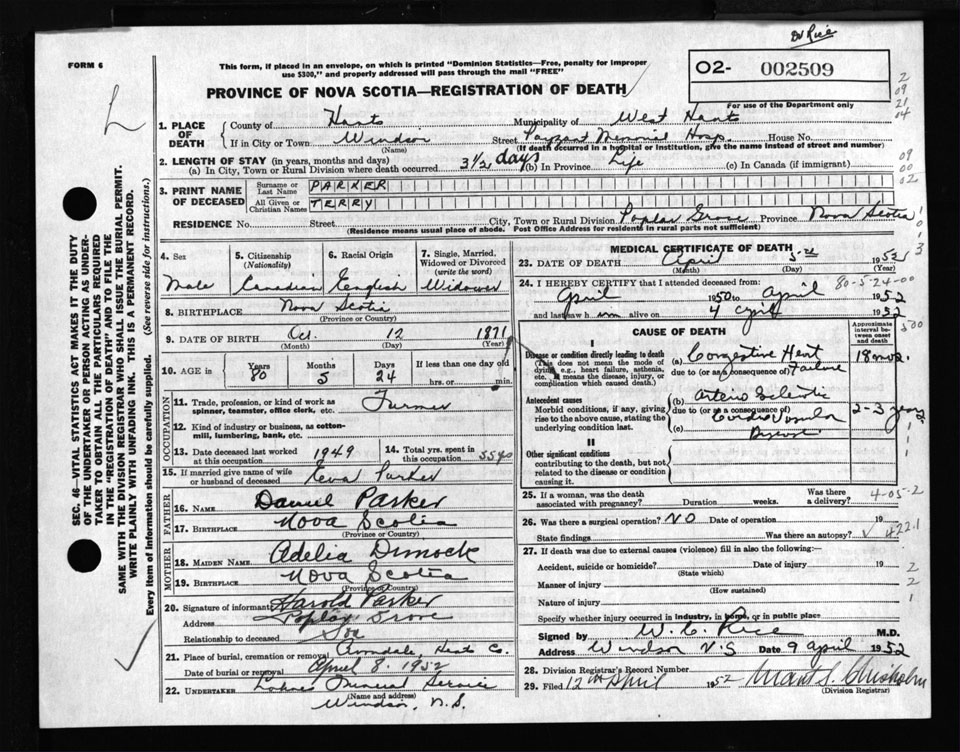 Dr Rice
FORM 6
This form, if placed in an envelope, on which is printed "Dominion Statistics—Free, penalty for improper
use $300," and properly addressed will pass through the mail "FREE"
02- 002509
For use of the Department only
PROVINCE OF NOVA SCOTIA—REGISTRATION OF DEATH
2
09
21
04
09
00
02
SEC. 46—VITAL STATISTICS ACT MAKES IT THE DUTY
OF THE UNDERTAKER OR PERSON ACTING AS UNDER-
TAKER TO OBTAIN ALL THE PARTICULARS REQUIRED
IN THE "REGISTRATION OF DEATH" AND TO FILE THE
SAME WITH THE DIVISION REGISTRAR WHO SHALL ISSUE THE BURIAL PERMIT.
WRITE PLAINLY WITH UNFADING INK. THIS IS A PERMANENT RECORD.
Every item of information should be carefully supplied. (See reverse side for instructions.)
1. PLACE OF DEATH County of Hants Municipality of West Hants
If in City or Town Windsor (Name) Street Payzant Memorial Hosp. House No.
(If death occurred in a hospital or institution, give the name instead of street and number)
2. LENGTH OF STAY (in years, months and days)
(a) In City, Town or Rural Division where death occurred 3 1/2 days (b) In Province Life (c) In Canada (if immigrant)
3. PRINT NAME OF DECEASED
Surname or Last Name PARKER
All Given or Christian Names TERRY
RESIDENCE No. Street City, Town or Rural Division Poplar Grove Province Nova Scotia
(Residence means usual place of abode. Post Office Address for residents in rural parts not sufficient)
4. Sex Male
5. Citizenship (Nationality) Canadian
6. Racial Origin English
7. Single, Married, Widowed or Divorced (write the word) Widower
8. BIRTHPLACE Nova Scotia
(Province or Country)
9. DATE OF BIRTH Oct. 12 1871
(Month) (Day) (Year)
10. AGE in Years 80 Months 5 Days 24 If less than one day old hrs. or min.
OCCUPATION
11. Trade, profession, or kind of work as spinner, teamster, office clerk, etc. Farmer
12. Kind of industry or business, as cotton-mill, lumbering, bank, etc.
13. Date deceased last worked at this occupation 1949
14. Total yrs. spent in this occupation 55 yrs
15. If married give name of wife or husband of deceased Eva Parker
FATHER
16. NAME Daniel Parker
17. BIRTHPLACE Nova Scotia
(Province or Country)
MOTHER
18. MAIDEN NAME Adelia Dimock
19. BIRTHPLACE Nova Scotia
(Province or Country)
20. Signature of informant Harold Parker
Address Poplar Grove
Relationship to deceased Son
21. Place of burial, cremation or removal Avondale, Hants Co.
Date of burial or removal April 8, 1952
22. UNDERTAKER Funeral Service
(Name and address)
Windsor, N.S.
MEDICAL CERTIFICATE OF DEATH
23. DATE OF DEATH April 5 1952
(Month) (Day) (Year)
80-5-24-00
24. I HEREBY CERTIFY that I attended deceased from:
April 1950 to April 1952
and last saw him alive on 4 April 1952
CAUSE OF DEATH
Approximate interval between onset and death
I
Disease or condition directly leading to death
(This does not mean the mode of dying, e.g., heart failure, asthenia, etc. It means the disease, injury, or complication which caused death.)
(a) Congestive Heart Failure 18 mos.
due to (or as a consequence of)
Antecedent causes
Morbid conditions, if any, giving rise to the above cause, stating the underlying condition last.
(b) Arterio Sclerotic
due to (or as a consequence of)
(c) Cardio Vascular Disease 2-3 years
II
Other significant conditions
contributing to the death, but not related to the disease or condition causing it.
25. If a woman, was the death associated with pregnancy? Duration weeks. Was there a delivery?
4-05-2
26. Was there a surgical operation? NO Date of operation 19
State findings Was there an autopsy?
422.1
27. If death was due to external causes (violence) fill in also the following:—
Accident, suicide or homicide? Date of injury 19
(State which)
Manner of injury
(How sustained)
Nature of injury
Specify whether injury occurred in industry, in home, or in public place
Signed by W. C. Rice M.D.
Address Windsor N.S Date 9 April 1952
28. Division Registrar's Record Number
29. Filed 12th April 1952 Chisholm
(Division Registrar)